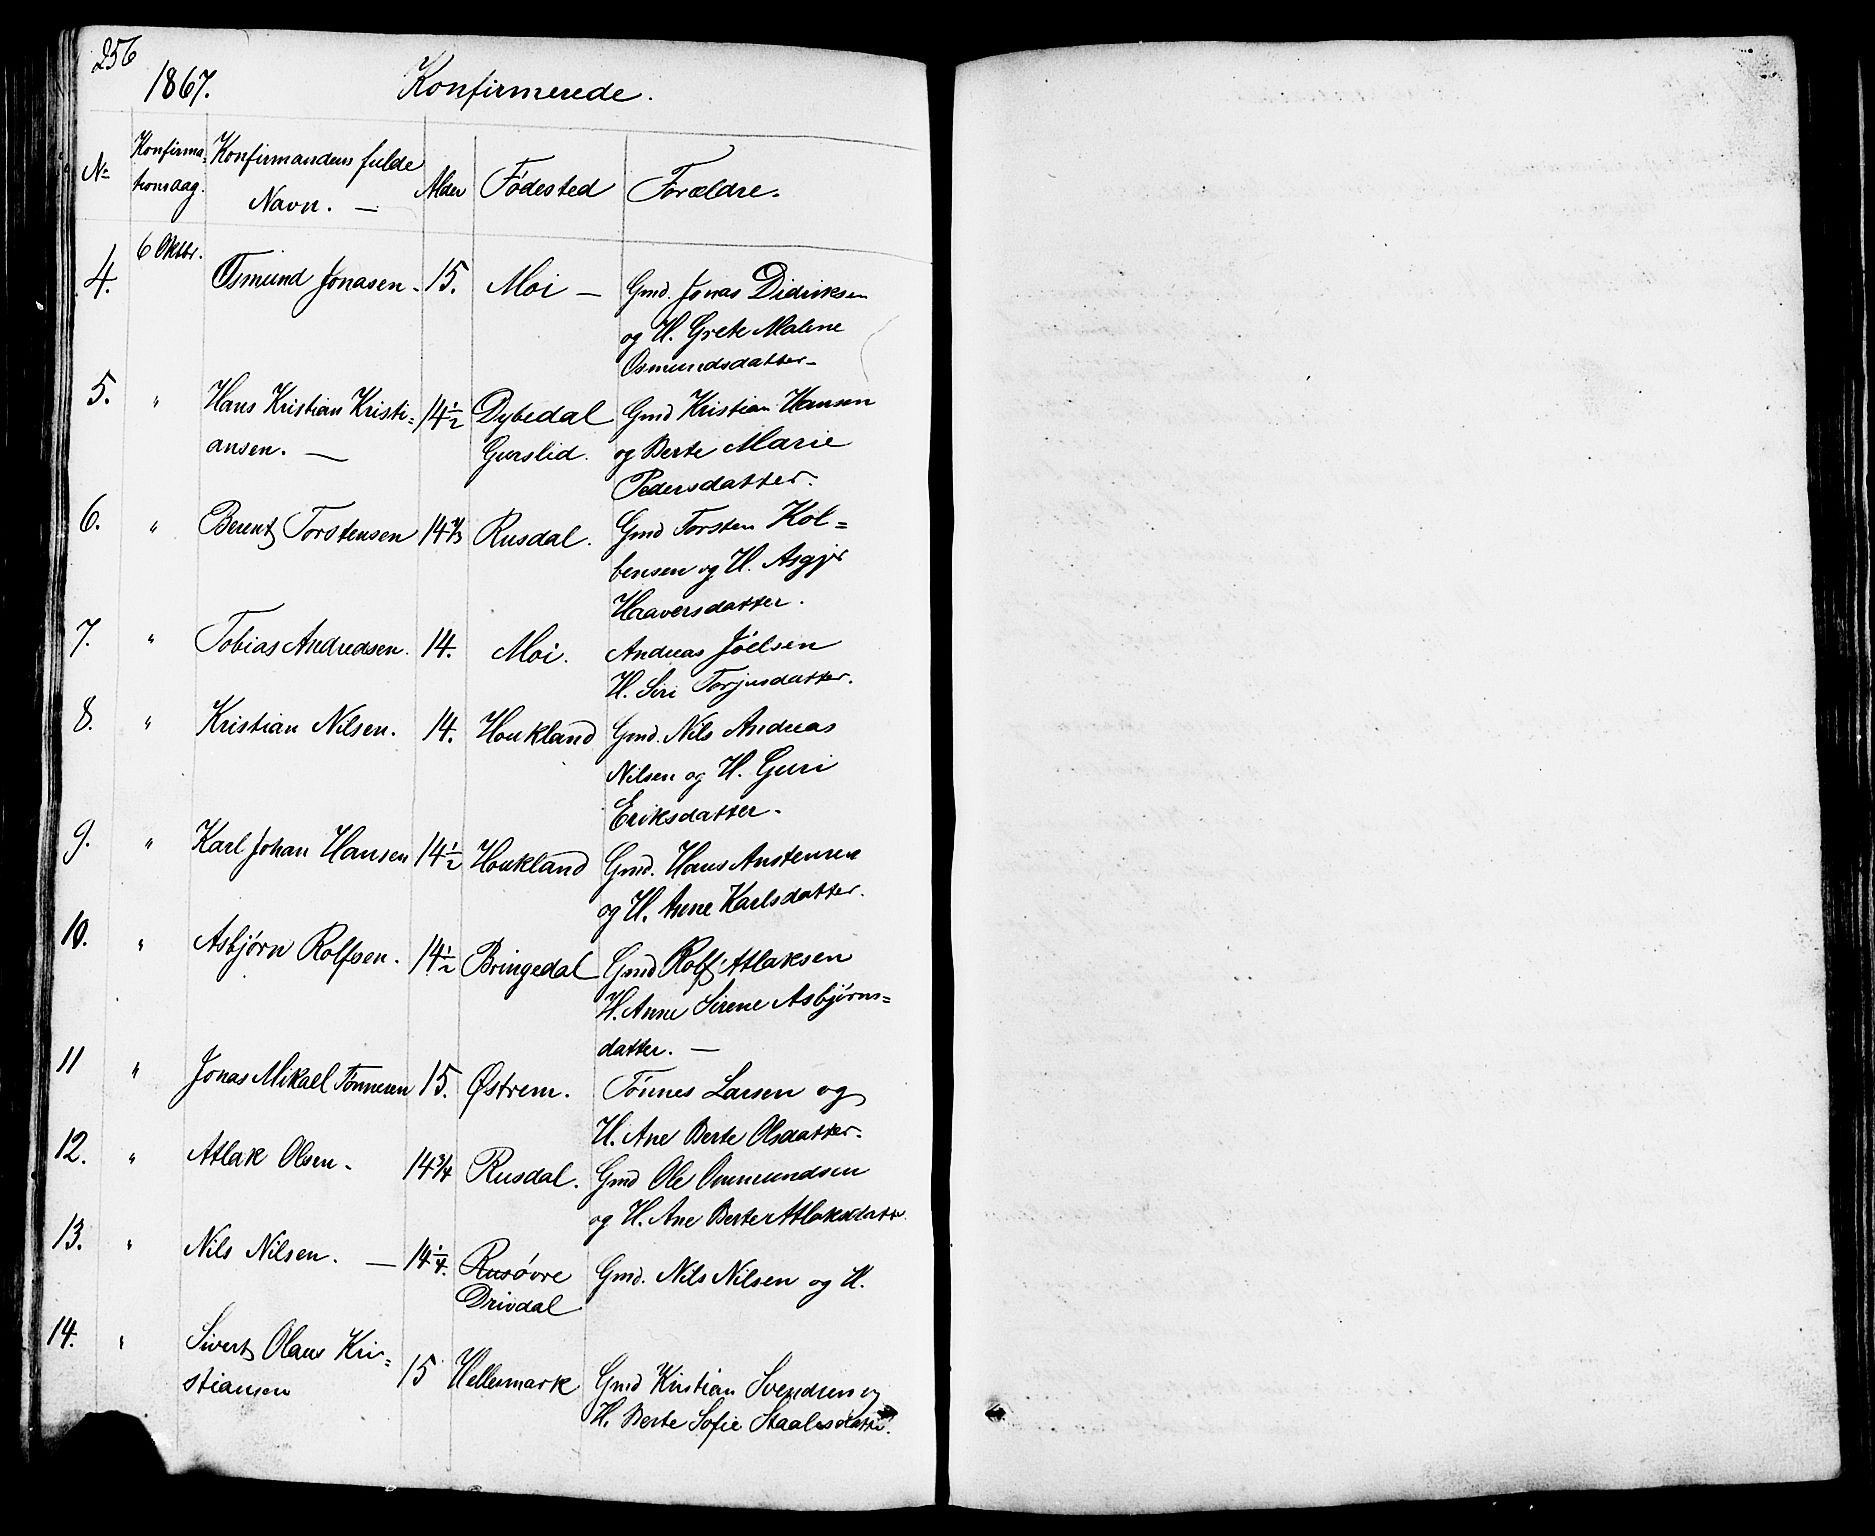 256
1867. Konfirmerede.
No Konfirma- tionsdag. Konfirmandens fulde Navn. — Alder Fødested Forældre.
4. 6 Oktbr. Osmund Jonasen - 15. Moi — Gmd. Jonas Didriksen
og H. Grete Malene
Osmundsdatter -
5. " Hans Kristian Kristi= 14 1/2 Dybedal Gmd Kristian Hansen
ansen. — Gurslid. og Berte Marie
Pedersdatter.
6. " Berent Torstensen 14 1/3 Rusdal. Gmd Torsten Kol=
bensen og H. Asgjer
Haaversdatter.
7. " Tobias Andredsen. 14. Moi. Andreas Jöelsen
H. Siri Torjusdatter.
8. " Kristian Nilsen. 14. Houkland Gmd. Nils Andreas
Nilsen og H. Guri
Eriksdatter.
9. " Karl Johan Hansen 14 1/2 Houkland Gmd. Hans Anstensen
og H. Anne Karlsdatter.
10. " Asbjørn Rolfsen. 14 1/2 Bringedal Gmd Rolf Atlaksen
H. Anne Sirene Asbjørns=
datter. —
11 " Jonas Mikael Tönnesen 15. Østrem. Tönnes Larsen og
H. Ane Berte Olsdatter.
12. " Atlak Olsen - 14 3/4 Rusdal. Gmd Ole Ommundsen
og H. Ane Berte Atlaksdatt.
13. " Nils Nilsen. — 14 1/4. Rusövre Gmd. Nils Nilsen og H.
Drivdal
14. " Sivert Olaus Kri= 15 Hellesmark Gmd Kristian Svendsen og
stiansen H. Berte Sofie Staalesdatte.